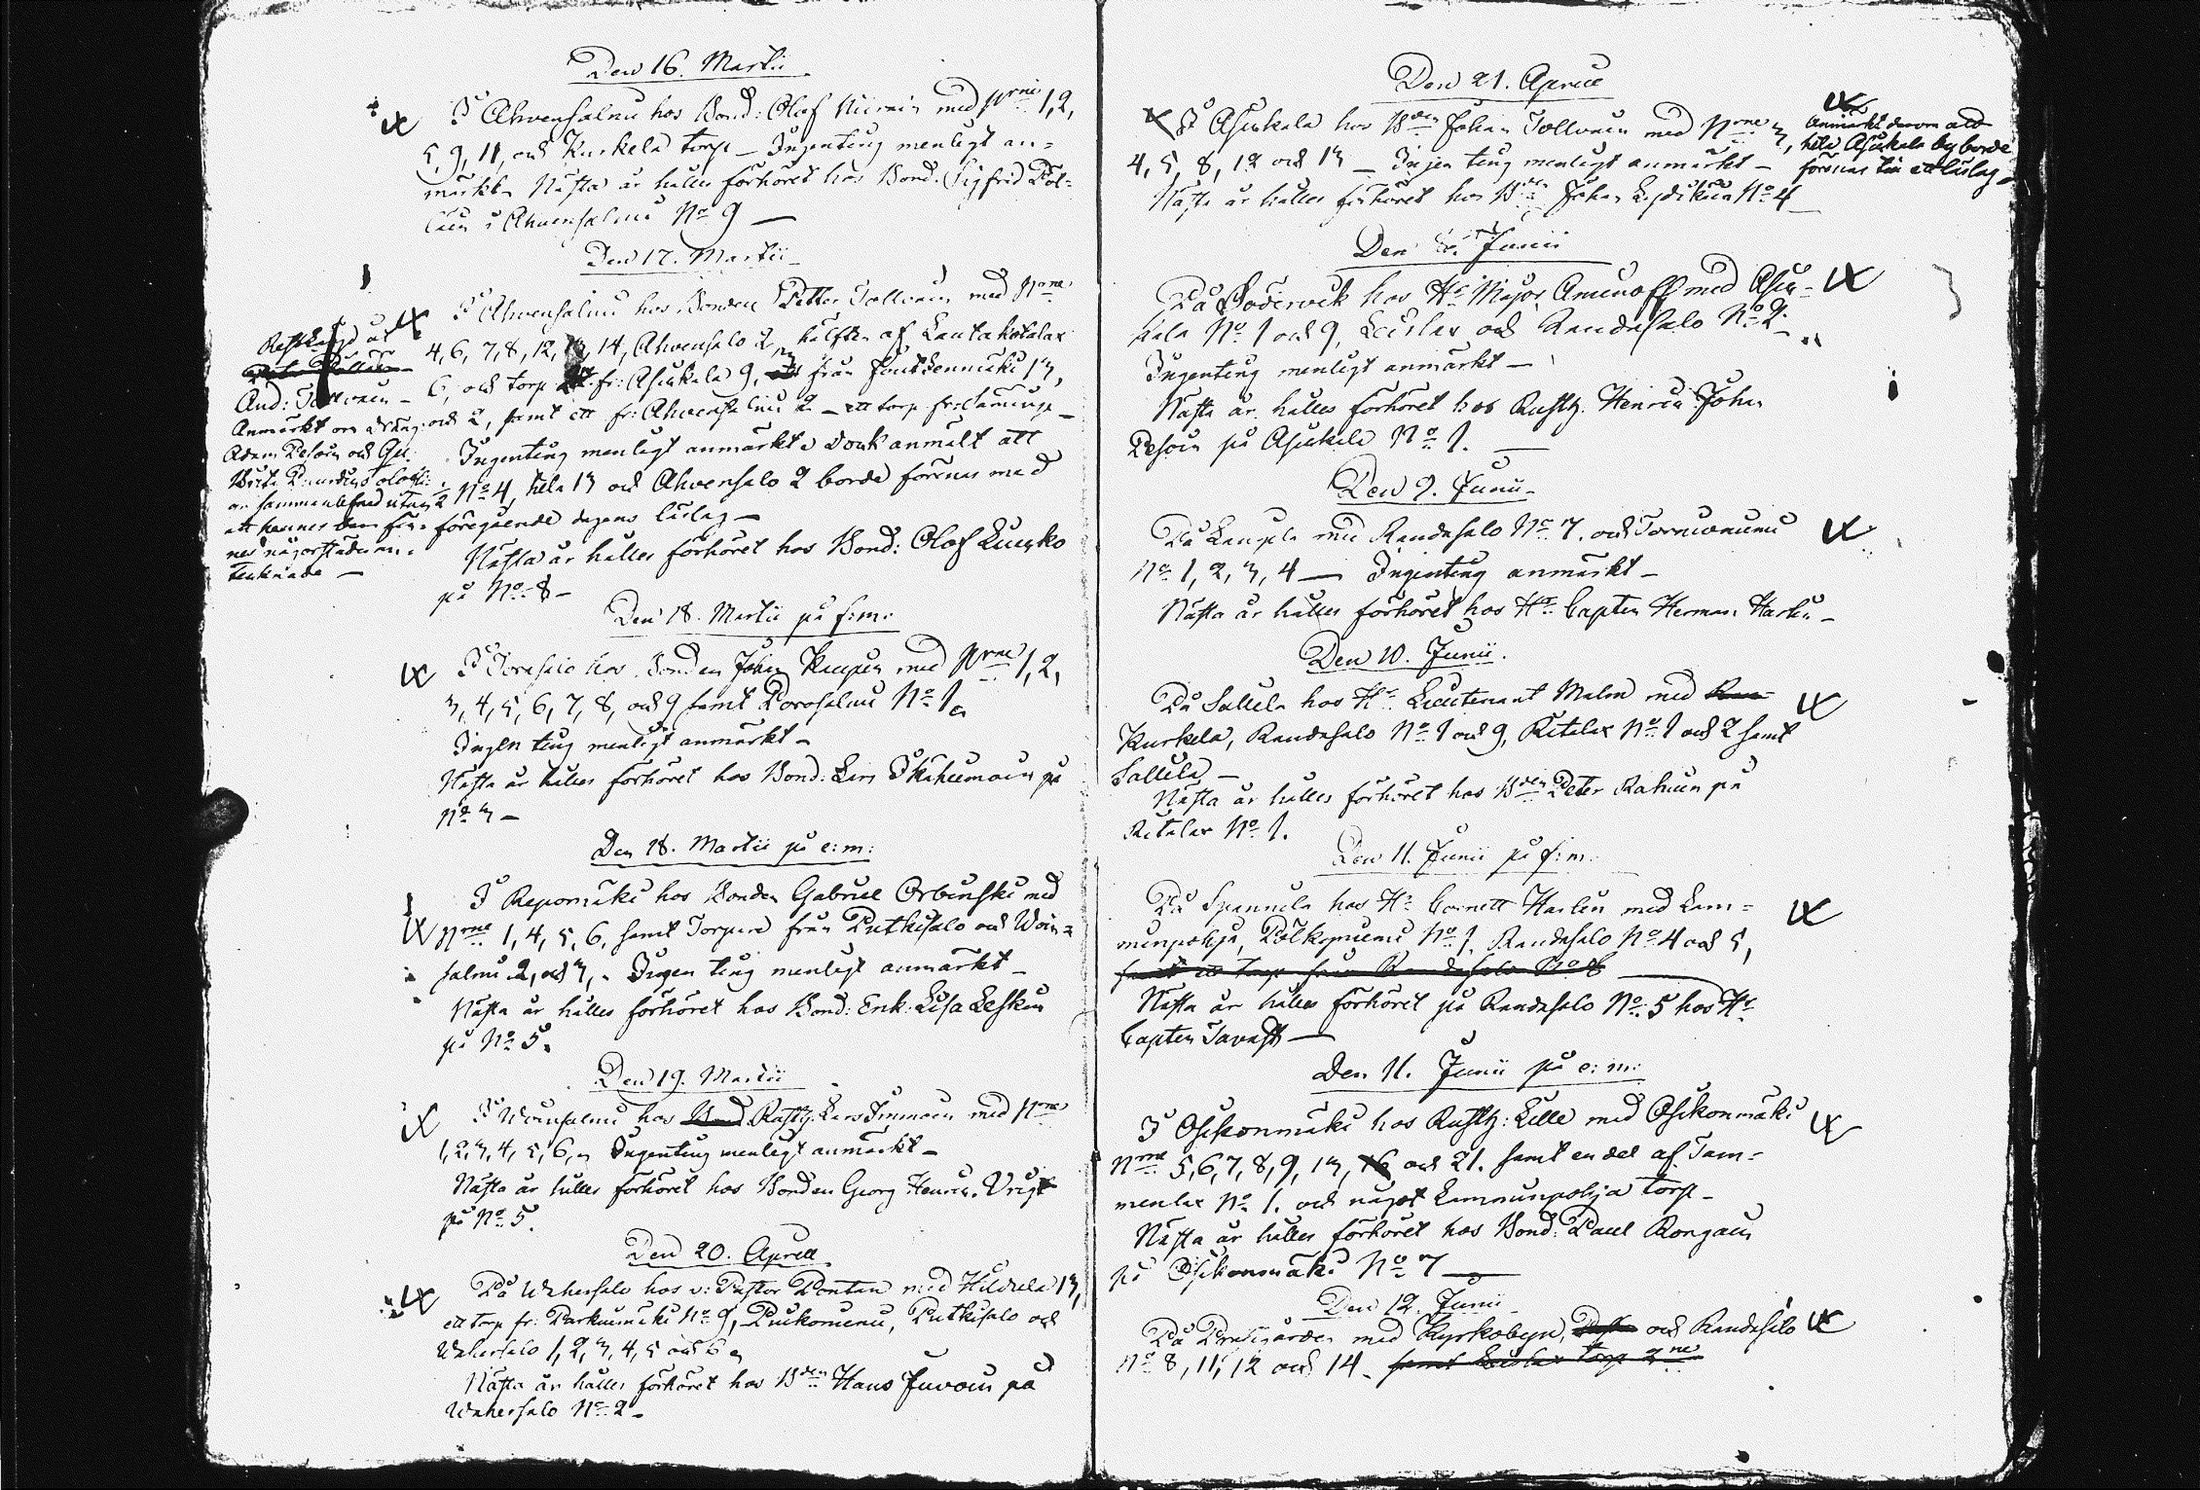 Den 16. Martii
I Ahvensalmi hos Bond: Olof med Nrne 1, 2,
5, 9, 11, och Kurkela torp – Ingenting menligt an=
märkt. Nästa år hålles förhöret hos Bond. Sigfrid Pöl=
läin i Ahvensalmi No 9 –
Den 17. Martii
I Ahvensalmi hos Bonden Petter Tollvain med Nrne
4, 6, 7, 8, 12, 13, 14, Ahvensalo 2, hälften af Lautakotalax
6, och torp fr: Asikkala 9, från 13,
och 2, samt ett fr: Ahvensalmi 2 – ett torp fr:
Ingenting menligt anmärkt, dock anmält att
No 4, hela 13 och Ahvensalo 2 borde förenas med
föregående dagens läslag –
Nästa år hålles förhöret hos Bond: Olof
på No 8 –
And: Tollvain –
Anmärkt om dräng:
Adam Pesoin och
Brita
att
nes någorstädes an=
tecknade –
Den 18. Martii på f:m:
I Torasalo hos Bonden Johan Kaupin med Nrne 1, 2,
3, 4, 5, 6, 7, 8, och 9 samt Porosalmi No 1.
Ingen ting menligt anmärkt –
Nästa år hålles förhöret hos Bond: Lars Ikäheimoin på
No 3 –
Den 18. Martii på e:m:
I Repomäki hos Bonden Gabriel Orbinski med
Nrne 1, 4, 5, 6, samt Torpare från Putkisalo och Woin=
salmi 2, och 3, – Ingen ting menligt anmärkt –
Nästa år hålles förhöret hos Bond: Enk: Lisa Leskin
på No 5.
Den 19. Martii
I Woinsalmi hos Bond Rusth: Lars Immoin med Nrne
1, 2, 3, 4, 5, 6, Ingenting menligt anmärkt –
Nästa år hålles förhöret hos Bonden Georg Henric.
på No 5.
Den 20. Aprill
På Wahersalo hos v: Pastor Pontan med Hildula 13,
ett torp fr: Parkumäki No 9, Putkisalo och
Wahersalo 1, 2, 3, 4, 5 och 6
Nästa år hålles förhöret hos Bden Hans Juvoin på
Wahersalo No 2 –
Den 21. Aprill
I Asikkala hos Bden Johan Tollvain med Nrne 3,
4, 5, 8, 12 och 13 – Ingen ting menligt anmärkt –
Nästa år hålles förhöret hos Bden Johan Lydikäin No 4 –
Anmärkt derom att
hela Asikkala by borde
förenas till ett läslag –
Den 8. Junii
På hos Hr Major Aminoff med Asik=
kala No 1 och 9, och Randasalo No 2 –
Ingenting menligt anmärkt –
Nästa år hålles förhöret hos Rusth. Henric Johan
Pesoin på Asikkala No 1. –
Den 9. Junii –
På Laupla med Randasalo No 7, och Torvioniemi
No 1, 2, 3, 4 – Ingenting anmärkt –
Nästa år hålles förhöret hos Hr Capten Herman Harlin –
Den 10. Junii.
På Sallela hos Hr Lieutenant Malm med Ran=
Kurkela, Randasalo No 1 och 9, Ritalax No 1 och 2 samt
Sallela –
Nästa år hålles förhöret hos Bden Peter Rahuin på
Ritalax No 1.
Den 11. Junii på f:m:
På Spannila hos Hr Cornett Harlin med Lam=
minpohja, Pölköniemi No 1, Randasalo No 4 och 5,
samt ett torp från Randasalo No 8
Nästa år hålles förhöret på Randasalo No 5 hos Hr
Capten Tavast –
Den 11. Junii på e:m:
I Osikonmäki hos Rusth: Lille med Osikonmäki
Nrne 5, 6, 7, 8, 9, 13, 16, och 21. samt en del af Tam=
menlax No 1. och något Lamminpohja torp –
Nästa år hålles förhöret hos Bond: Paul Rongain
på Osikonmäki No 7 –
Den 12. Junii
På Prestgården med Kyrkobyn, och Randasalo
No 8, 11, 12 och 14. samt torp